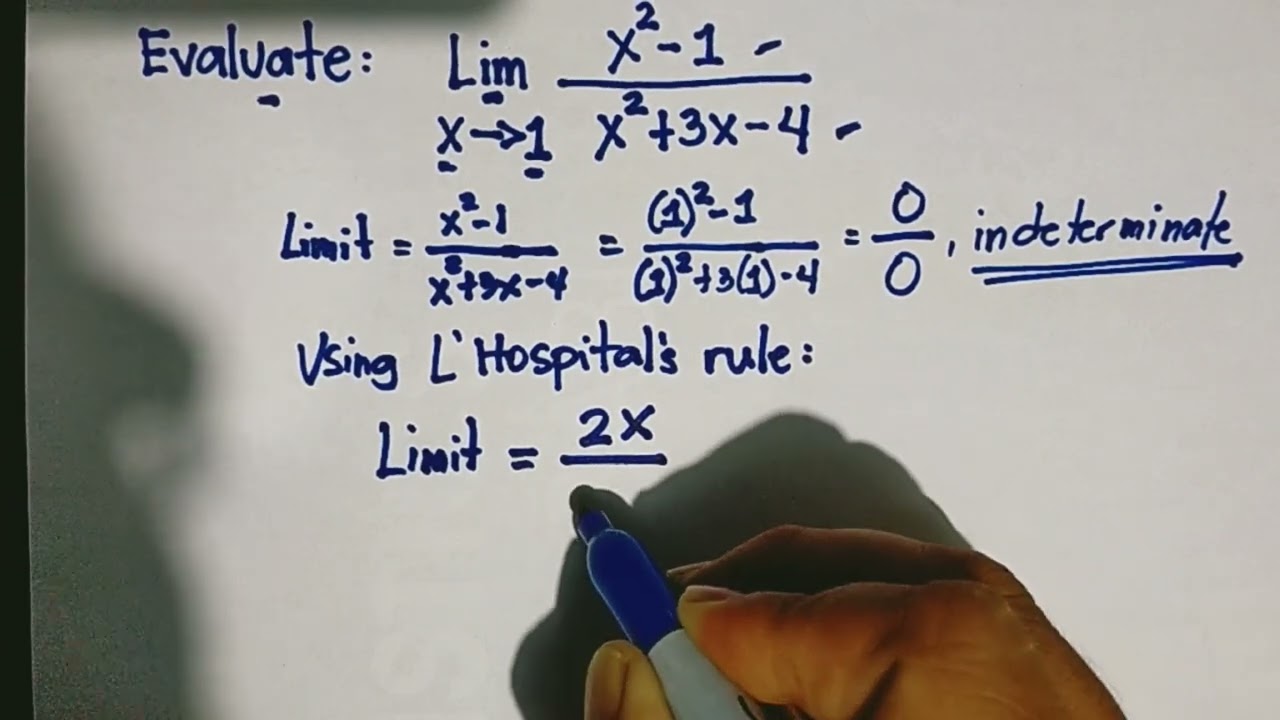 Evaluate: Lim x²-1
x→1 x²+3x-4
Limit = x²-1 / x²+3x-4 = (1)²-1 / (1)²+3(1)-4 = 0/0, indeterminate
Using L'Hospital's rule:
Limit = 2x